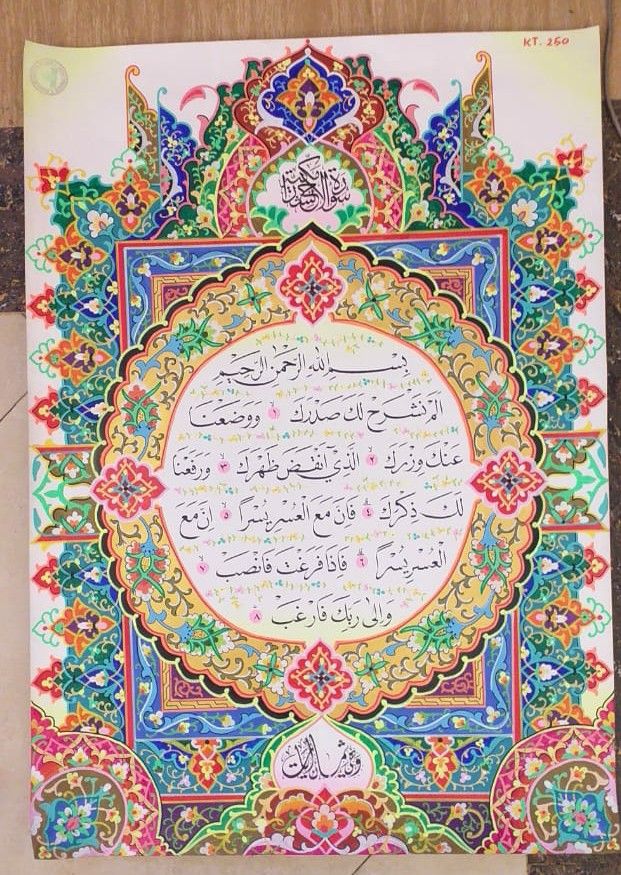 KT. 250
سورة
بِسْمِ اللهِ الرَّحْمٰنِ الرَّحِيْمِ
اَلَمْ نَشْرَحْ لَكَ صَدْرَكَ ١ وَوَضَعْنَا
عَنْكَ وِزْرَكَ ٢ الَّذِيْ اَنْقَضَ ظَهْرَكَ ٣ وَرَفَعْنَا
لَكَ ذِكْرَكَ ٤ فَاِنَّ مَعَ الْعُسْرِ يُسْرًا ٥ اِنَّ مَعَ
الْعُسْرِ يُسْرًا ٦ فَاِذَا فَرَغْتَ فَانْصَبْ ٧
وَاِلٰى رَبِّكَ فَارْغَبْ ٨
وهي ثمان ايات